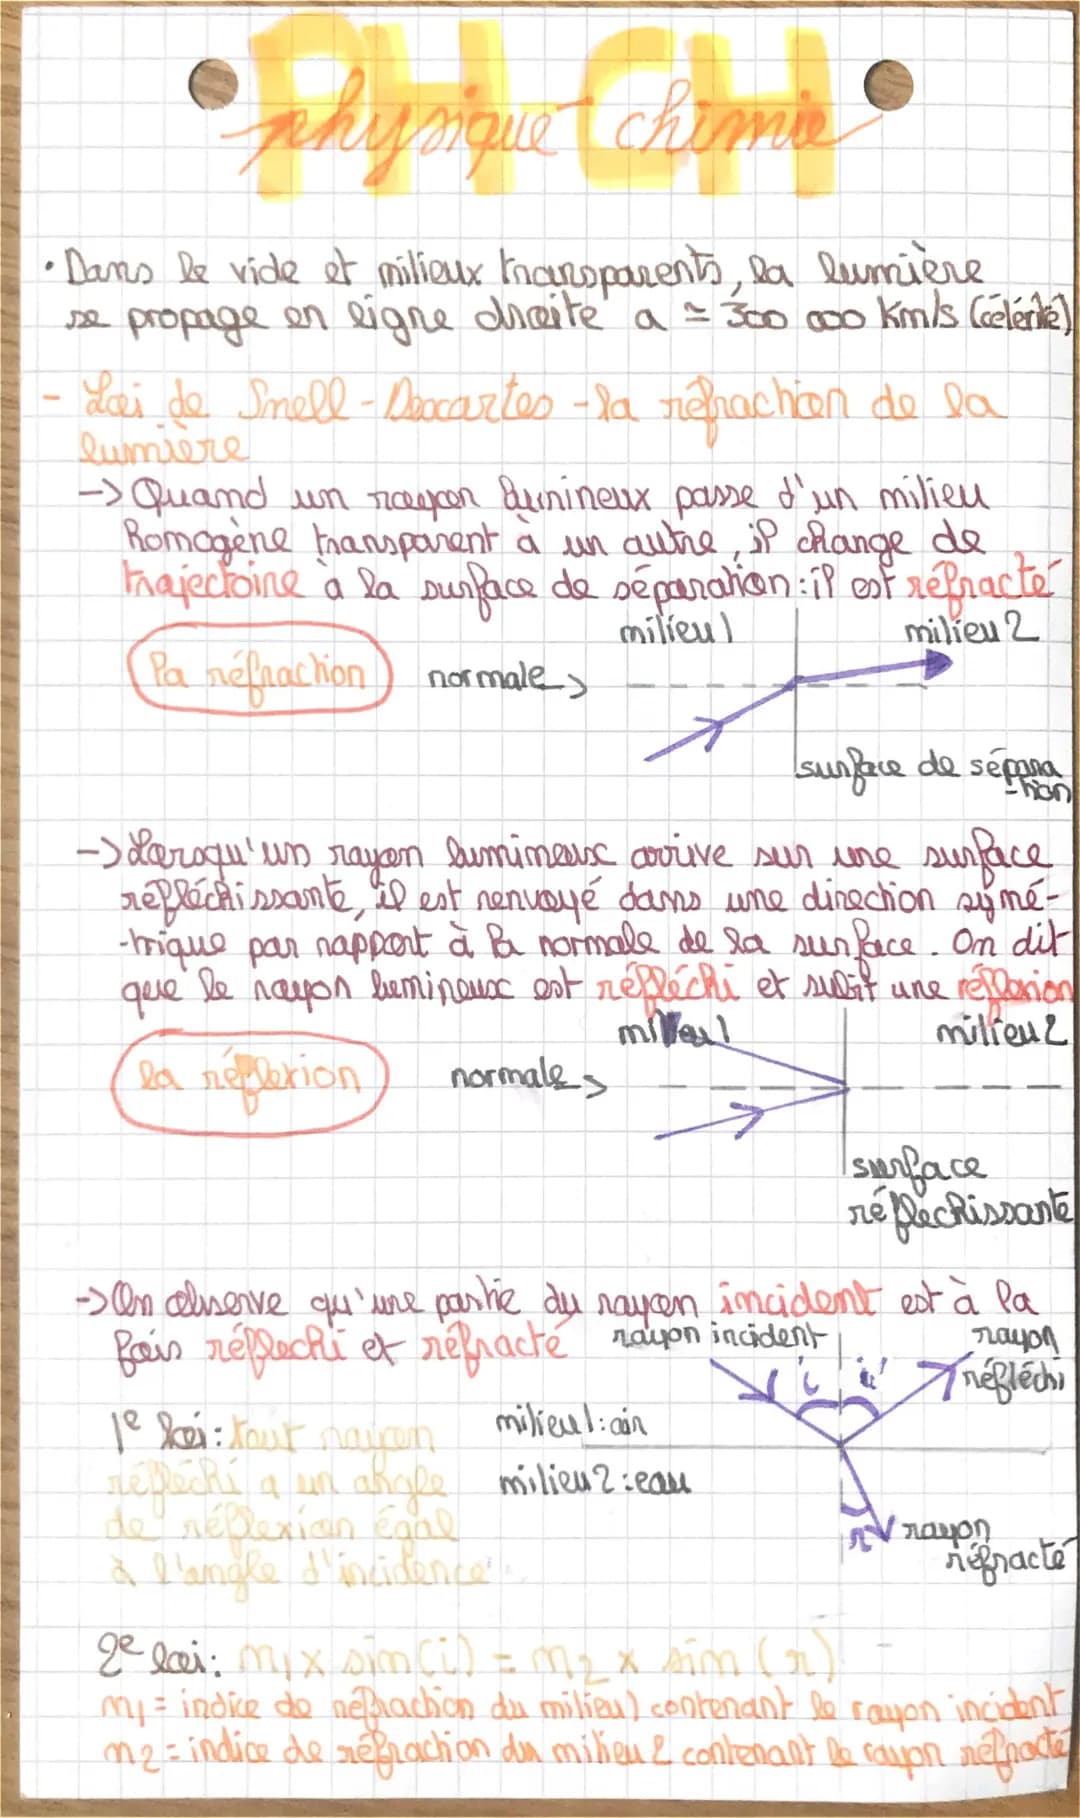 PH-CH
physique chimie
• Dans le vide et milieux transparents, la lumière
se propage en ligne droite a ≃ 300 000 Km/s (célérité)
- Loi de Snell-Descartes - la réfraction de la
lumière
-> Quand un rayon lumineux passe d'un milieu
homogène transparent à un autre, il change de
trajectoire à la surface de séparation : il est réfracté
milieu 1 milieu 2
la réfraction normale >
surface de sépara
-tion
-> Lorsqu'un rayon lumineux arrive sur une surface
réfléchissante, il est renvoyé dans une direction symé-
-trique par rapport à la normale de la surface. On dit
que le rayon lumineux est réfléchi et subit une réflexion
milieu 1 milieu 2
la réflexion normale >
surface
réfléchissante
-> On observe qu'une partie du rayon incident est à la
fois réflechi et réfracté
rayon incident rayon
réfléchi
i i'
1e loi : tout rayon
réfléchi a un angle
de réflexion égal
à l'angle d'incidence
milieu 1 : air
milieu 2 : eau
r rayon
réfracté
2e loi : n1 x sin(i) = n2 x sin(r)
n1 = indice de réfraction du milieu 1 contenant le rayon incident
n2 = indice de réfraction du milieu 2 contenant le rayon réfracté